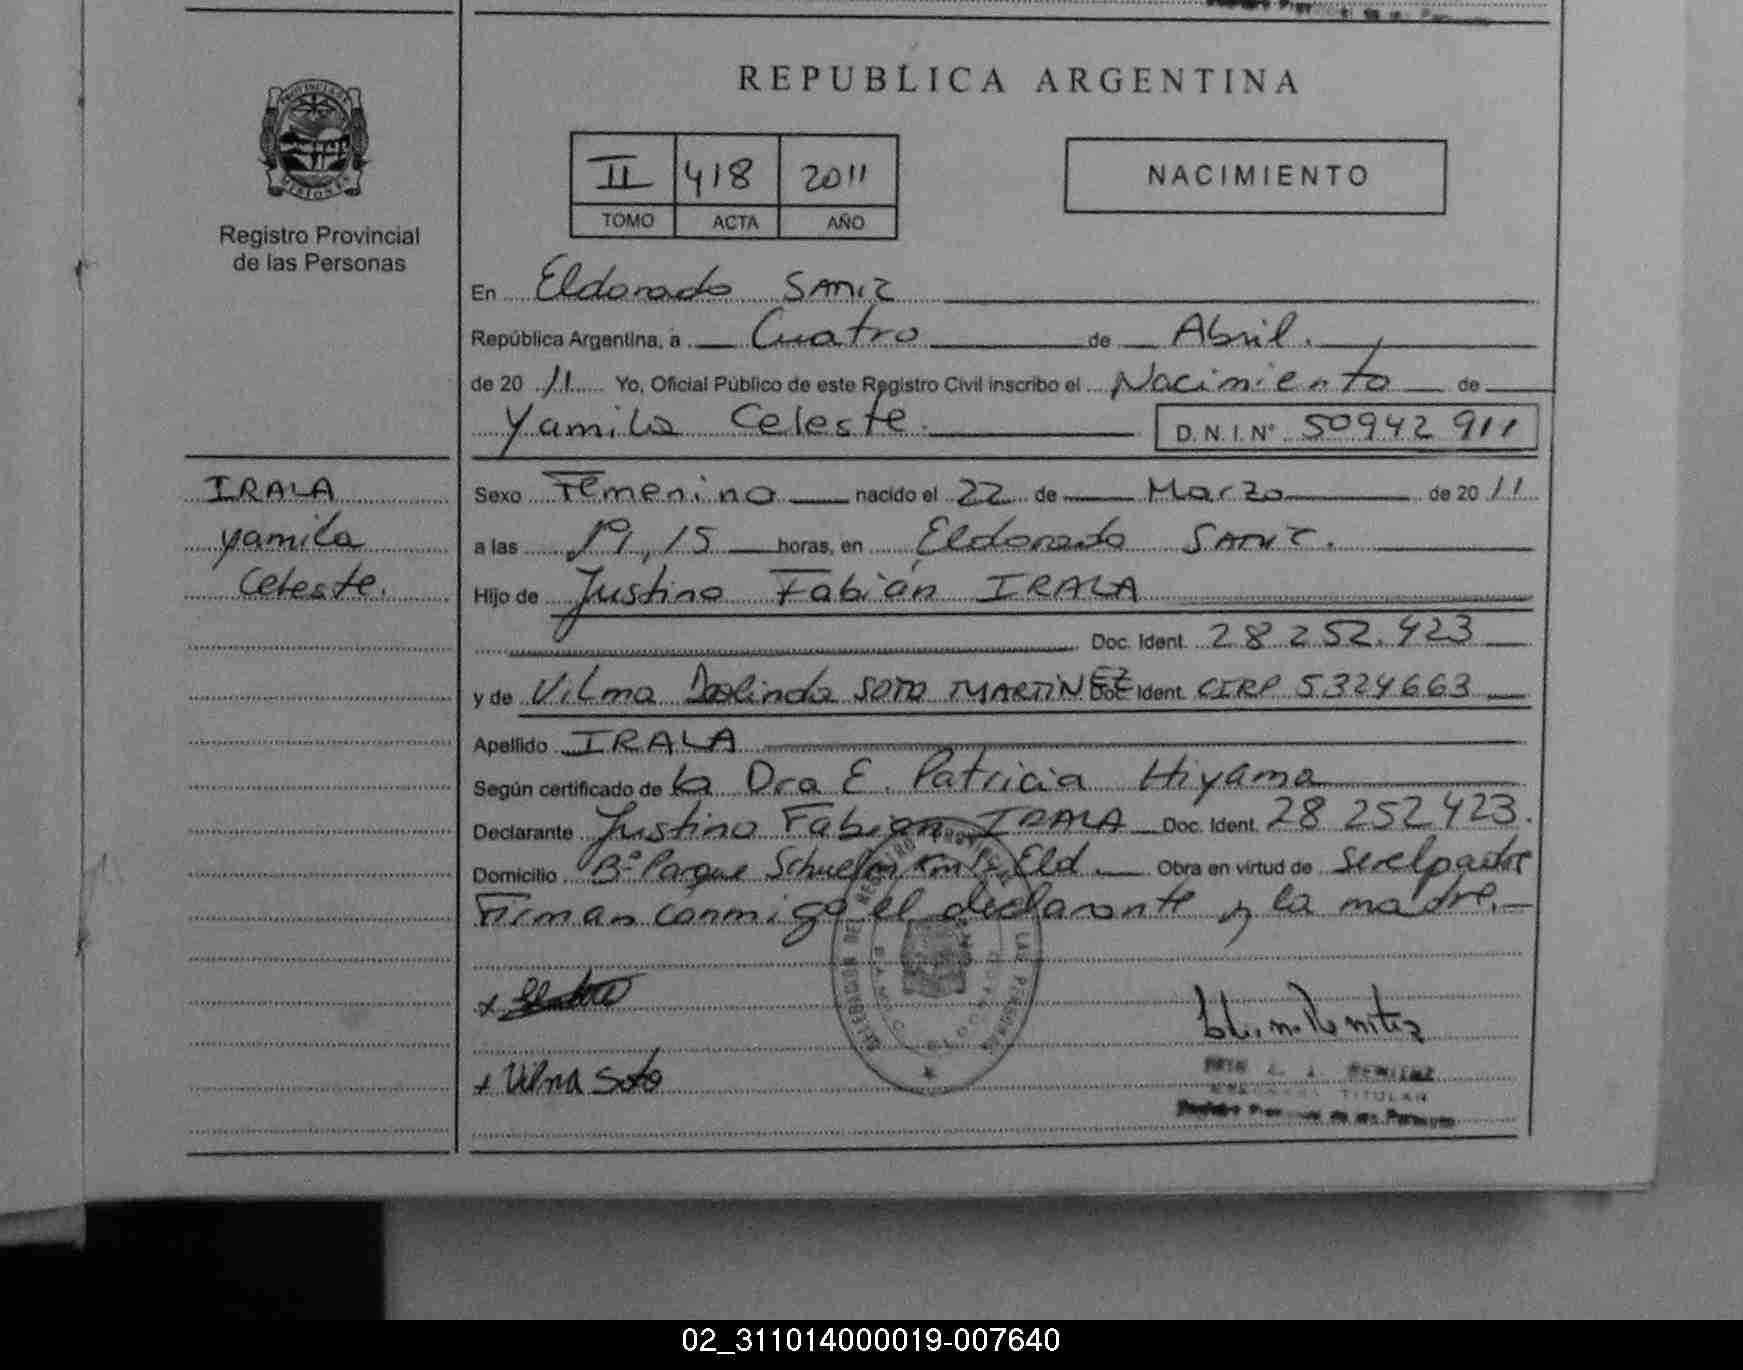 REPUBLICA ARGENTINA
PROVINCIA DE MISIONES
Registro Provincial
de las Personas
II 418 2011
TOMO ACTA AÑO
NACIMIENTO
En Eldorado SAMIC
República Argentina, a Cuatro de Abril.
de 20 11 Yo, Oficial Público de este Registro Civil inscribo el Nacimiento de
Yamila Celeste. D.N.I.Nº 50942 911
IRALA
yamila
Celeste.
Sexo Femenino nacido el 22 de Marzo de 20 11
a las 19,15 horas, en Eldorado SAMIC.
Hijo de Justino Fabián IRALA
Doc. Ident. 28 252.423
y de Vilma Deolinda SOTO MARTINEZ Doc. Ident. CIRP 5324663
Apellido IRALA
Según certificado de la Dra E. Patricia Hiyama
Declarante Justino Fabián IRALA Doc. Ident. 28 252423.
Domicilio Bº Parque Schuelm Eld Obra en virtud de ser el padre
Firman conmigo el declarante y la madre.
DELEGACION DEL REGISTRO PROVINCIAL DE LAS PERSONAS
x
x Vilma Soto
BENITEZ
TITULAR
Registro Provincial de las Personas
02_311014000019-007640